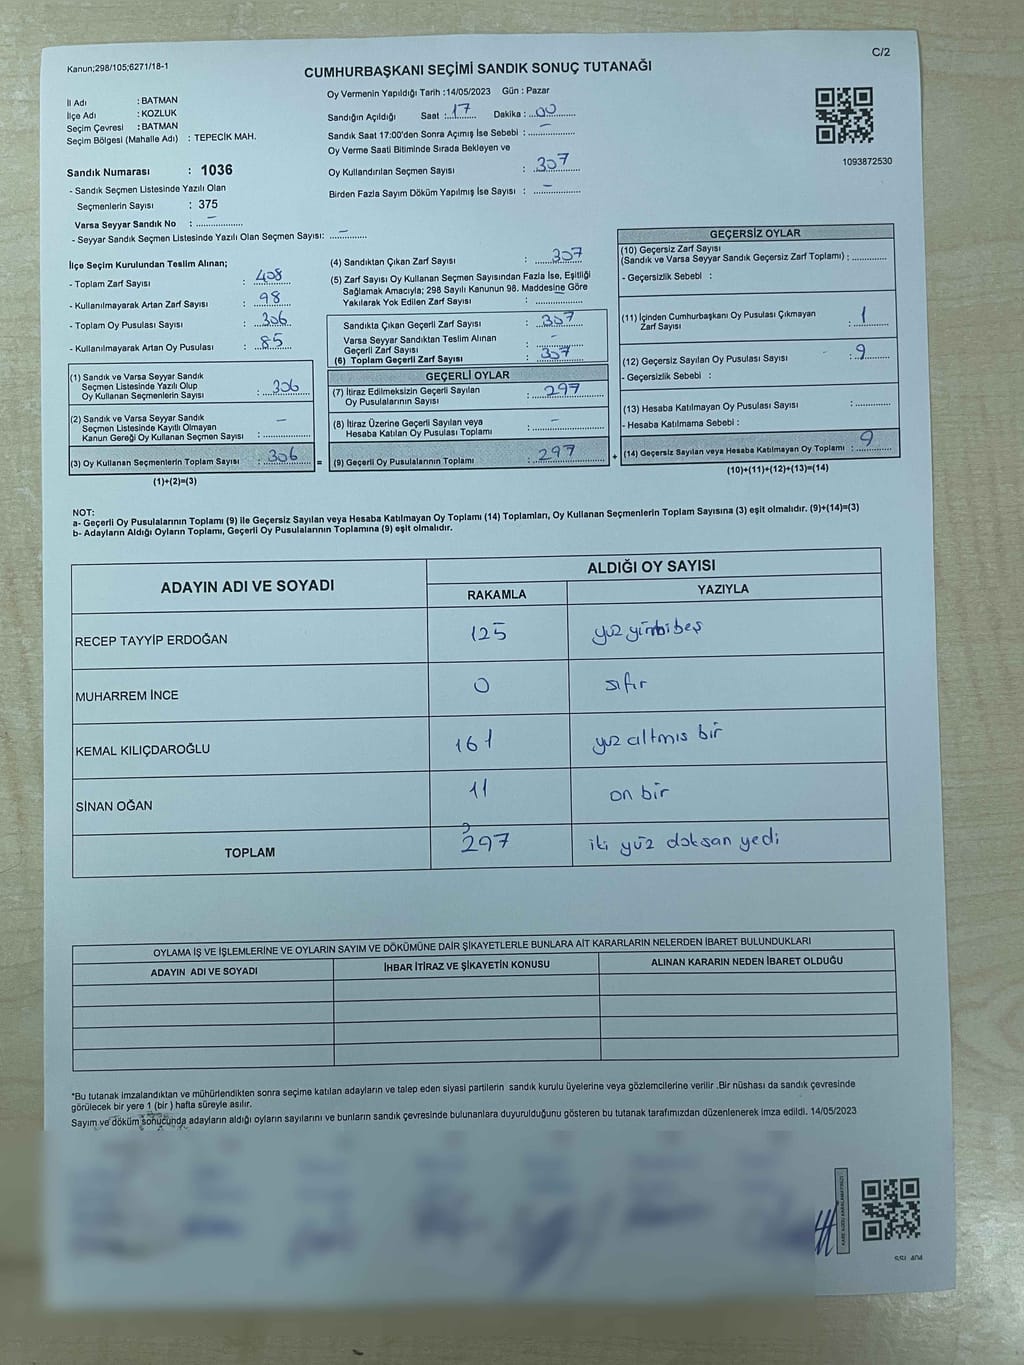 Kanun;298/105;6271/18-1
C/2
CUMHURBAŞKANI SEÇİMİ SANDIK SONUÇ TUTANAĞI
İl Adı : BATMAN
İlçe Adı : KOZLUK
Seçim Çevresi : BATMAN
Seçim Bölgesi (Mahalle Adı) : TEPECİK MAH.
Sandık Numarası : 1036
- Sandık Seçmen Listesinde Yazılı Olan
Seçmenlerin Sayısı : 375
Varsa Seyyar Sandık No : –
- Seyyar Sandık Seçmen Listesinde Yazılı Olan Seçmen Sayısı: –
Oy Vermenin Yapıldığı Tarih :14/05/2023 Gün : Pazar
Sandığın Açıldığı Saat : 17 Dakika : 00
Sandık Saat 17:00'den Sonra Açımış İse Sebebi : –
Oy Verme Saati Bitiminde Sırada Bekleyen ve
Oy Kullandırılan Seçmen Sayısı : 307
Birden Fazla Sayım Döküm Yapılmış İse Sayısı : –
1093872530
İlçe Seçim Kurulundan Teslim Alınan;
- Toplam Zarf Sayısı : 408
- Kullanılmayarak Artan Zarf Sayısı : 98
- Toplam Oy Pusulası Sayısı : 306
- Kullanılmayarak Artan Oy Pusulası : 85
(1) Sandık ve Varsa Seyyar Sandık
Seçmen Listesinde Yazılı Olup
Oy Kullanan Seçmenlerin Sayısı : 306
(2) Sandık ve Varsa Seyyar Sandık
Seçmen Listesinde Kayıtlı Olmayan
Kanun Gereği Oy Kullanan Seçmen Sayısı : –
(3) Oy Kullanan Seçmenlerin Toplam Sayısı : 306 =
(1)+(2)=(3)
(4) Sandıktan Çıkan Zarf Sayısı : 307
(5) Zarf Sayısı Oy Kullanan Seçmen Sayısından Fazla İse, Eşitliği
Sağlamak Amacıyla; 298 Sayılı Kanunun 98. Maddesine Göre
Yakılarak Yok Edilen Zarf Sayısı : –
Sandıkta Çıkan Geçerli Zarf Sayısı : 307
Varsa Seyyar Sandıktan Teslim Alınan
Geçerli Zarf Sayısı : –
(6) Toplam Geçerli Zarf Sayısı : 307
GEÇERLİ OYLAR
(7) İtiraz Edilmeksizin Geçerli Sayılan
Oy Pusulalarının Sayısı : 297
(8) İtiraz Üzerine Geçerli Sayılan veya
Hesaba Katılan Oy Pusulası Toplamı : –
(9) Geçerli Oy Pusulalarının Toplamı : 297 +
GEÇERSİZ OYLAR
(10) Geçersiz Zarf Sayısı
(Sandık ve Varsa Seyyar Sandık Geçersiz Zarf Toplamı) :
- Geçersizlik Sebebi :
(11) İçinden Cumhurbaşkanı Oy Pusulası Çıkmayan
Zarf Sayısı : 1
(12) Geçersiz Sayılan Oy Pusulası Sayısı : 9
- Geçersizlik Sebebi :
(13) Hesaba Katılmayan Oy Pusulası Sayısı :
- Hesaba Katılmama Sebebi :
(14) Geçersiz Sayılan veya Hesaba Katılmayan Oy Toplamı : 9
(10)+(11)+(12)+(13)=(14)
NOT:
a- Geçerli Oy Pusulalarının Toplamı (9) ile Geçersiz Sayılan veya Hesaba Katılmayan Oy Toplamı (14) Toplamları, Oy Kullanan Seçmenlerin Toplam Sayısına (3) eşit olmalıdır. (9)+(14)=(3)
b- Adayların Aldığı Oyların Toplamı, Geçerli Oy Pusulalarının Toplamına (9) eşit olmalıdır.
ADAYIN ADI VE SOYADI
ALDIĞI OY SAYISI
RAKAMLA YAZIYLA
RECEP TAYYİP ERDOĞAN 125 yüz yirmi beş
MUHARREM İNCE 0 sıfır
KEMAL KILIÇDAROĞLU 161 yüz altmış bir
SİNAN OĞAN 11 on bir
TOPLAM 297 iki yüz doksan yedi
OYLAMA İŞ VE İŞLEMLERİNE VE OYLARIN SAYIM VE DÖKÜMÜNE DAİR ŞİKAYETLERLE BUNLARA AİT KARARLARIN NELERDEN İBARET BULUNDUKLARI
ADAYIN ADI VE SOYADI İHBAR İTİRAZ VE ŞİKAYETİN KONUSU ALINAN KARARIN NEDEN İBARET OLDUĞU
*Bu tutanak imzalandıktan ve mühürlendikten sonra seçime katılan adayların ve talep eden siyasi partilerin sandık kurulu üyelerine veya gözlemcilerine verilir .Bir nüshası da sandık çevresinde
görülecek bir yere 1 (bir ) hafta süreyle asılır.
Sayım ve döküm sonucunda adayların aldığı oyların sayılarını ve bunların sandık çevresinde bulunanlara duyurulduğunu gösteren bu tutanak tarafımızdan düzenlenerek imza edildi. 14/05/2023